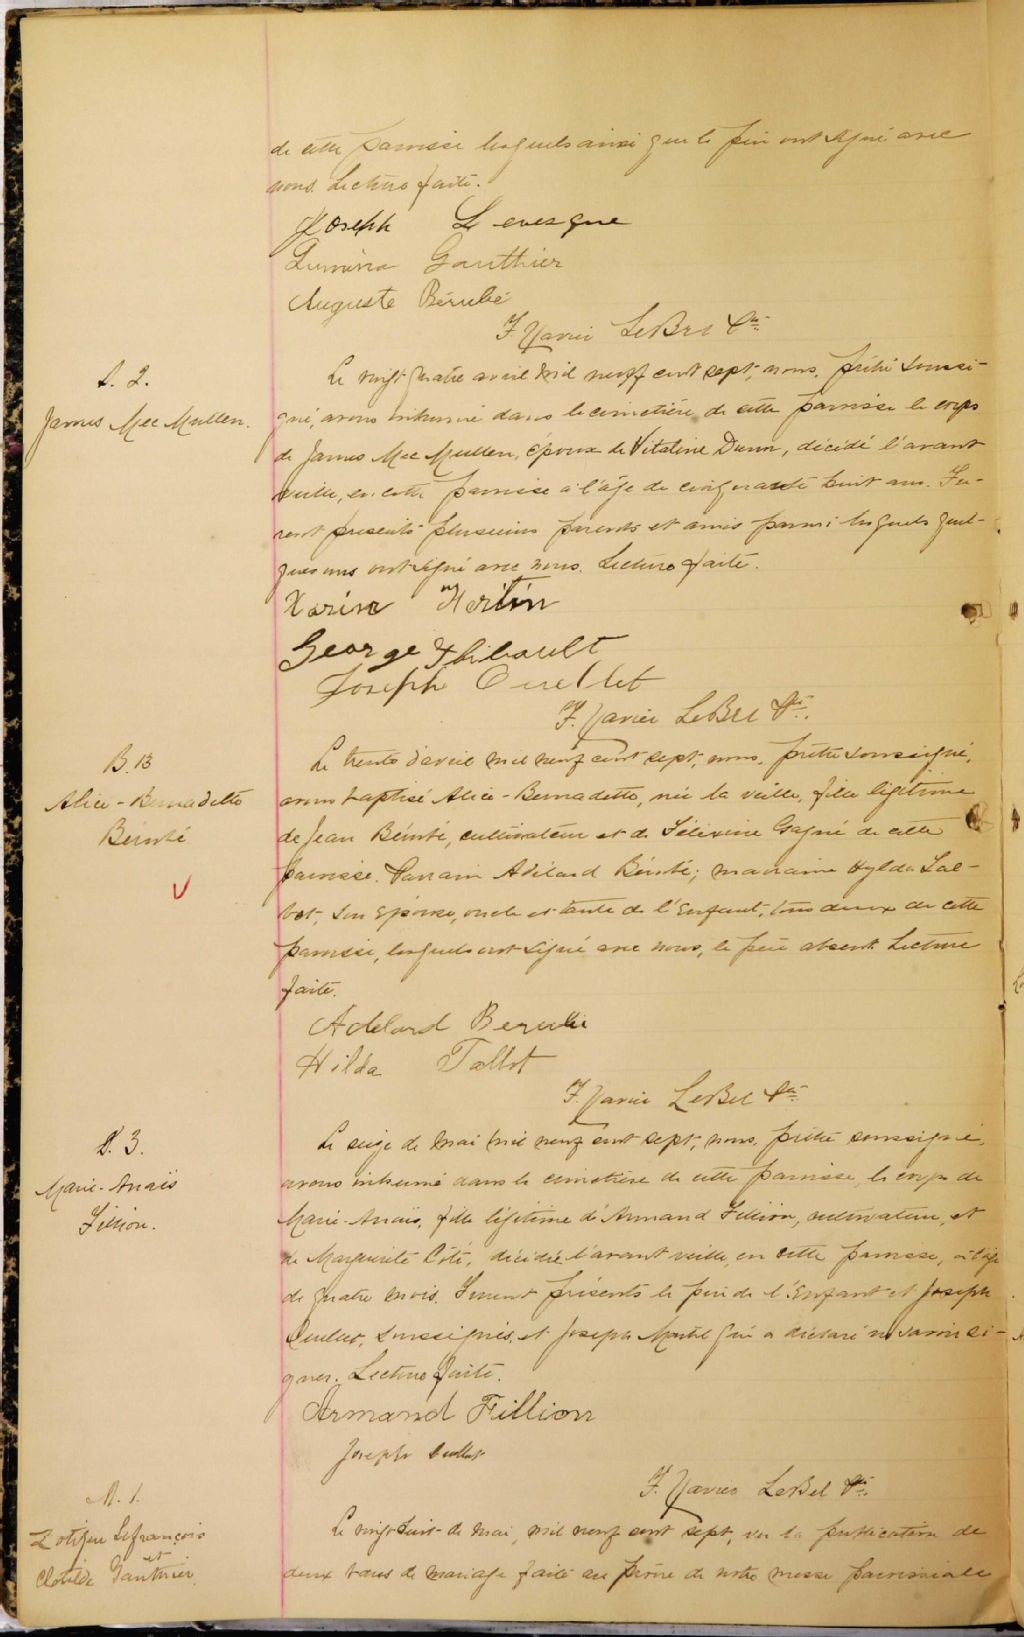 de cette paroisse lesquels ainsi que le père ont signé avec
nous. Lecture faite.
Joseph Levesque
Lumina Gauthier
Auguste Bérubé
F. Xavier LeBel Ptre
S. 2.
James Mec Mullen.
Le vingt-quatre avril mil neuf cent sept, nous, prêtre soussi-
gné, avons inhumé dans le cimetière de cette paroisse le corps
de James Mec Mullen, époux de Vitaline Dunn, décédé l'avant
veille, en cette paroisse à l'âge de cinquante huit ans. Fu-
rent présents plusieurs parents et amis parmi lesquels quel-
ques uns ont signé avec nous. Lecture faite.
George Thibault
Joseph Ouellet
F. Xavier LeBel Ptre.
B. 13
Alice-Bernadette
Bérubé
Le trente d'avril mil neuf cent sept, nous, prêtre soussigné,
avons baptisé Alice-Bernadette, née la veille, fille légitime
de Jean Bérubé, cultivateur et de Gagné de cette
paroisse. Parrain Adélard Bérubé; marraine Hylda Tal-
bot, son épouse, oncle et tante de l'enfant, tous deux de cette
paroisse, lesquels ont signé avec nous, le père absent. Lecture
faite.
Adelard Berubé
Hilda Talbot
F. Xavier LeBel Ptre
S. 3.
Marie-Anaïs
Fillion.
Le seize de mai mil neuf cent sept, nous, prêtre soussigné,
avons inhumé dans le cimetière de cette paroisse, le corps de
Marie-Anaïs, fille légitime d'Armand Fillion, cultivateur, et
de Marguerite Côté, décédée l'avant veille, en cette paroisse, à l'âge
de quatre mois. Furent présents le père de l'enfant et Joseph
Ouellet, soussignés, et Joseph Martel qui a déclaré ne savoir si-
gner. Lecture faite.
Armand Fillion
Joseph Ouellet
F. Xavier LeBel Ptre.
M. 1.
Zotique Lefrançois
et
Clotilde Gauthier.
Le vingt-huit de mai, mil neuf cent sept, vu la publication de
deux bans de mariage faite au prône de notre messe paroissiale